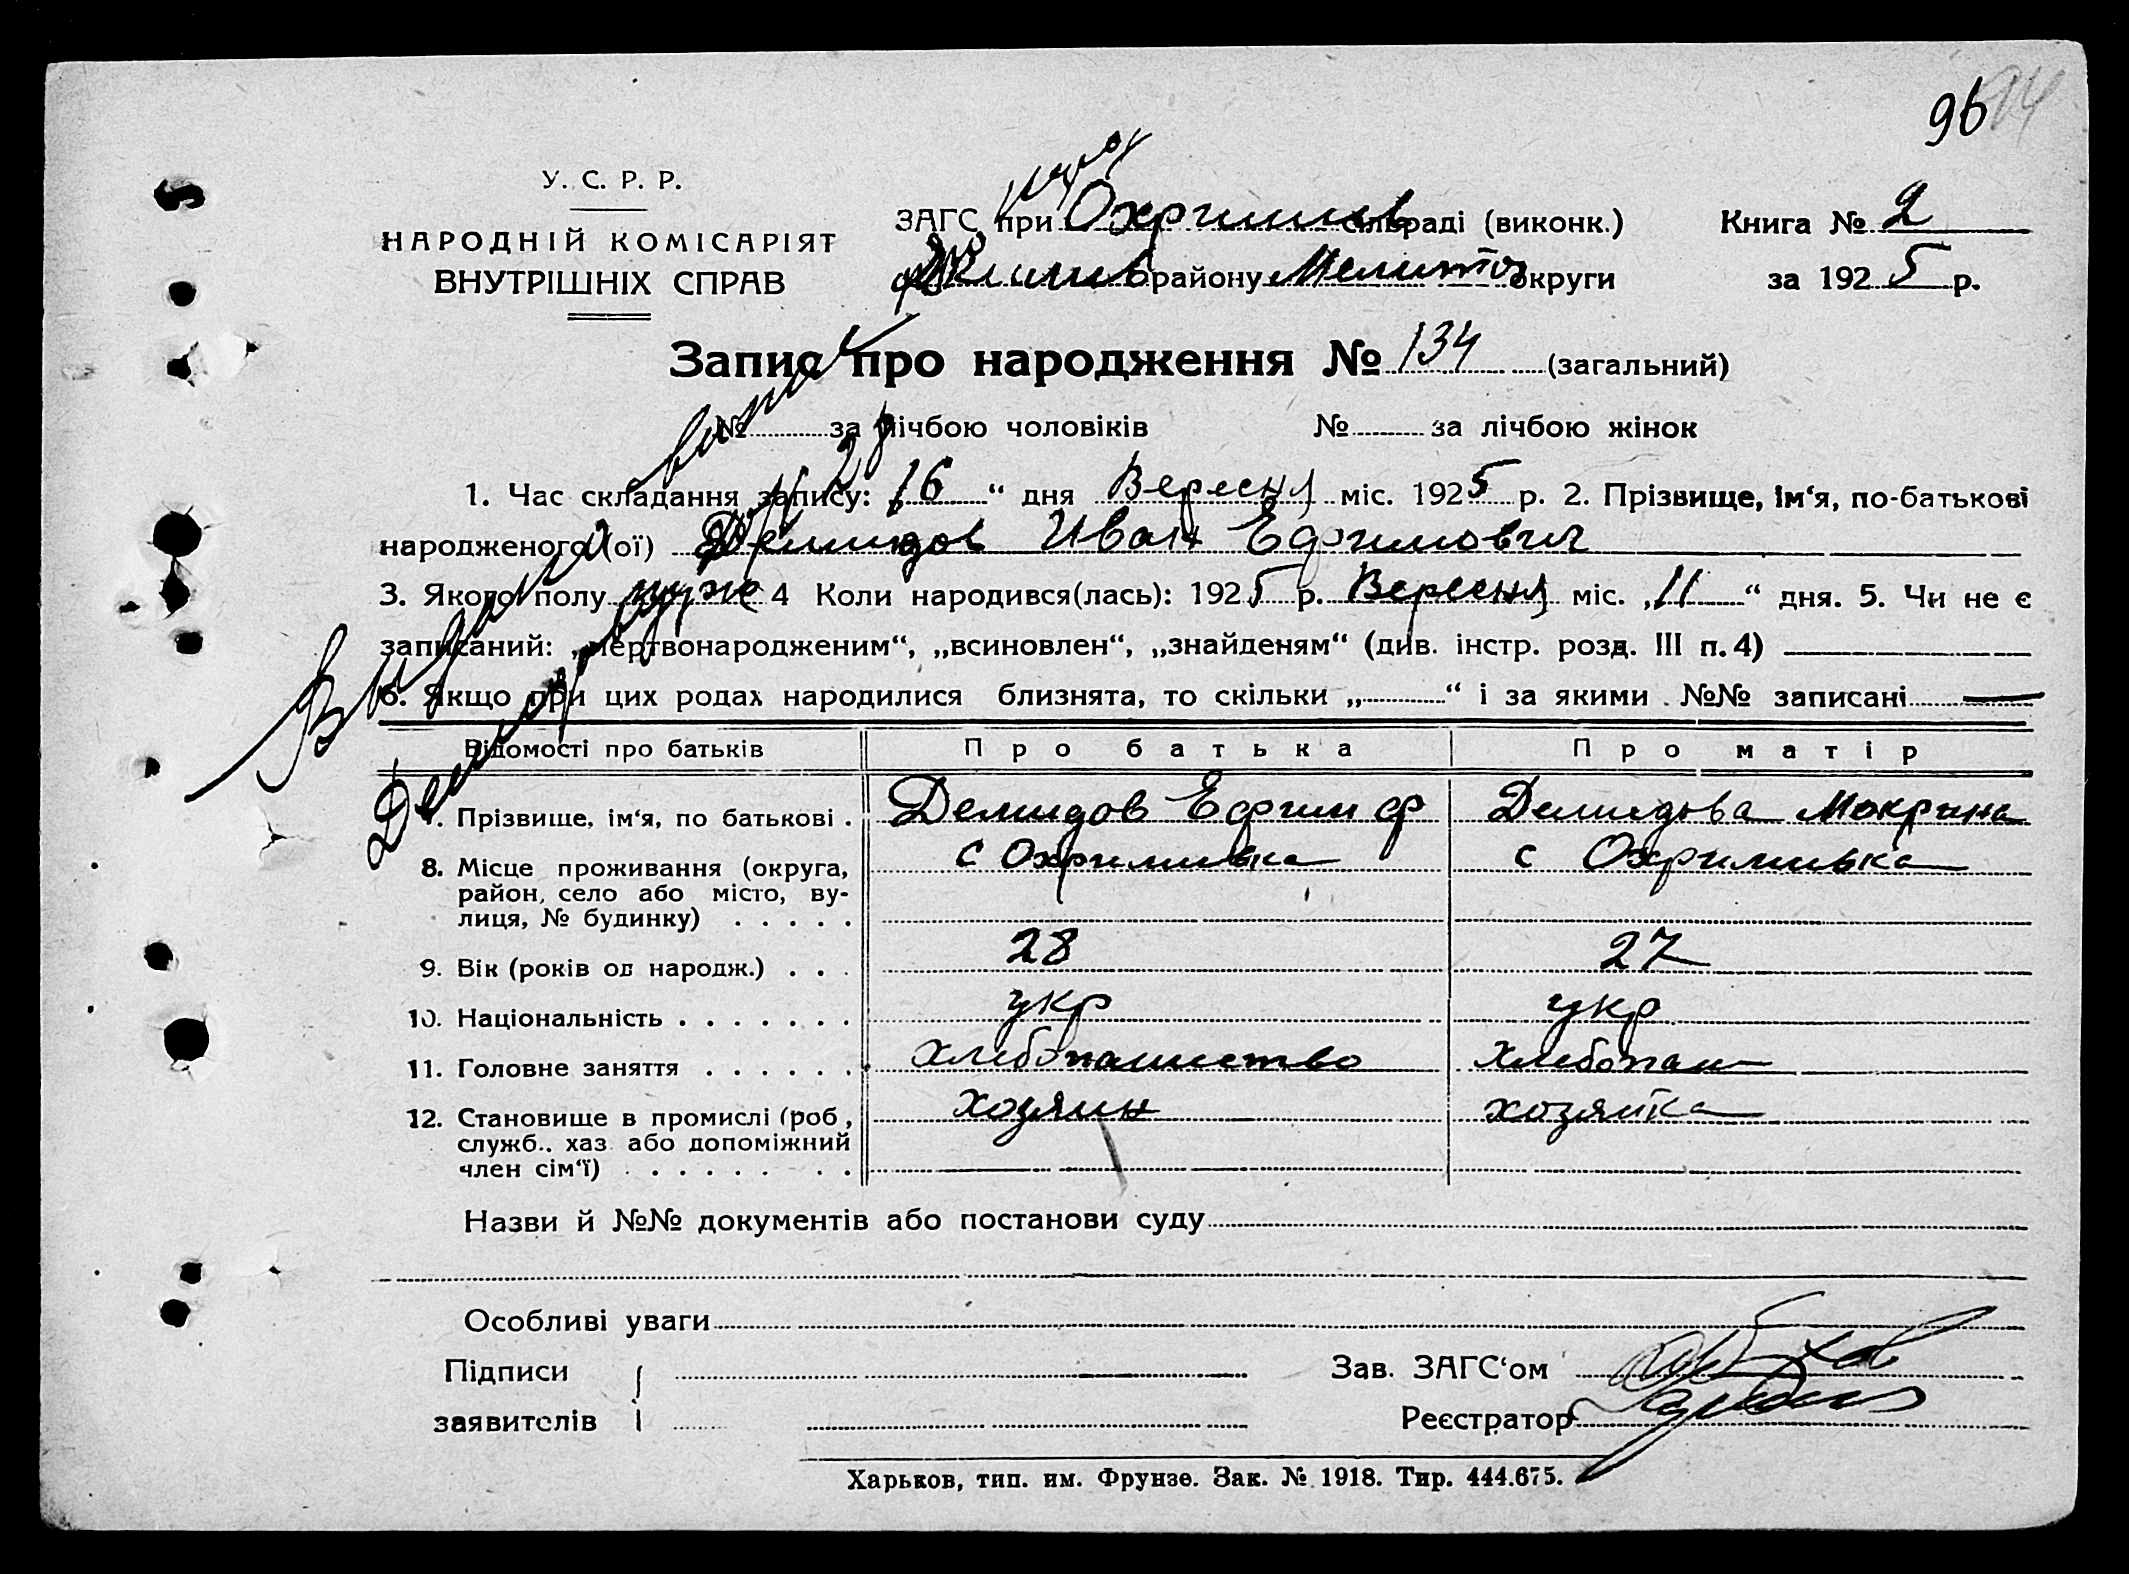 96 94
У. С. Р. Р.
НАРОДНІЙ КОМІСАРІЯТ
ВНУТРІШНІХ СПРАВ
ЗАГС при Охримів сільраді (виконк.)
району Мелитоп округи
Книга № 2
за 1925 р.
Запис про народження № 134 (загальний)
№ за лічбою чоловіків № за лічбою жінок
1. Час складання запису: „16“ дня Вересня міс. 1925 р. 2. Прізвище, ім‘я, по-батькові
народженого (ої) Демидов Иван Ефимович
3. Якого полу муж 4 Коли народився(лась): 1925 р. Вересня міс. „11“ дня. 5. Чи не є
записаний: „мертвонародженим“, „всиновлен“, „знайденям“ (див. інстр. розд. III п. 4)
6. Якщо при цих родах народилися близнята, то скільки „ “ і за якими №№ записані
Відомості про батьків Про батька Про матір
7. Прізвище, ім‘я, по батькові . Демидов Ефим Ф Демидова Мокрина
8. Місце проживання (округа, район, село або місто, вулиця, № будинку) с Охримивка с Охримивка
9. Вік (років од народж.) 28 27
10. Національність укр укр
11. Головне заняття хлебопашество хлебопаш
12. Становище в промислі (роб., служб., хаз. або допоміжний член сім‘ї) хозяин хозяйка
Назви й №№ документів або постанови суду
Особливі уваги
Підписи
заявителів
Зав. ЗАГС‘ом
Реєстратор
Харьков, тип. им. Фрунзе. Зак. № 1918. Тир. 444.675.